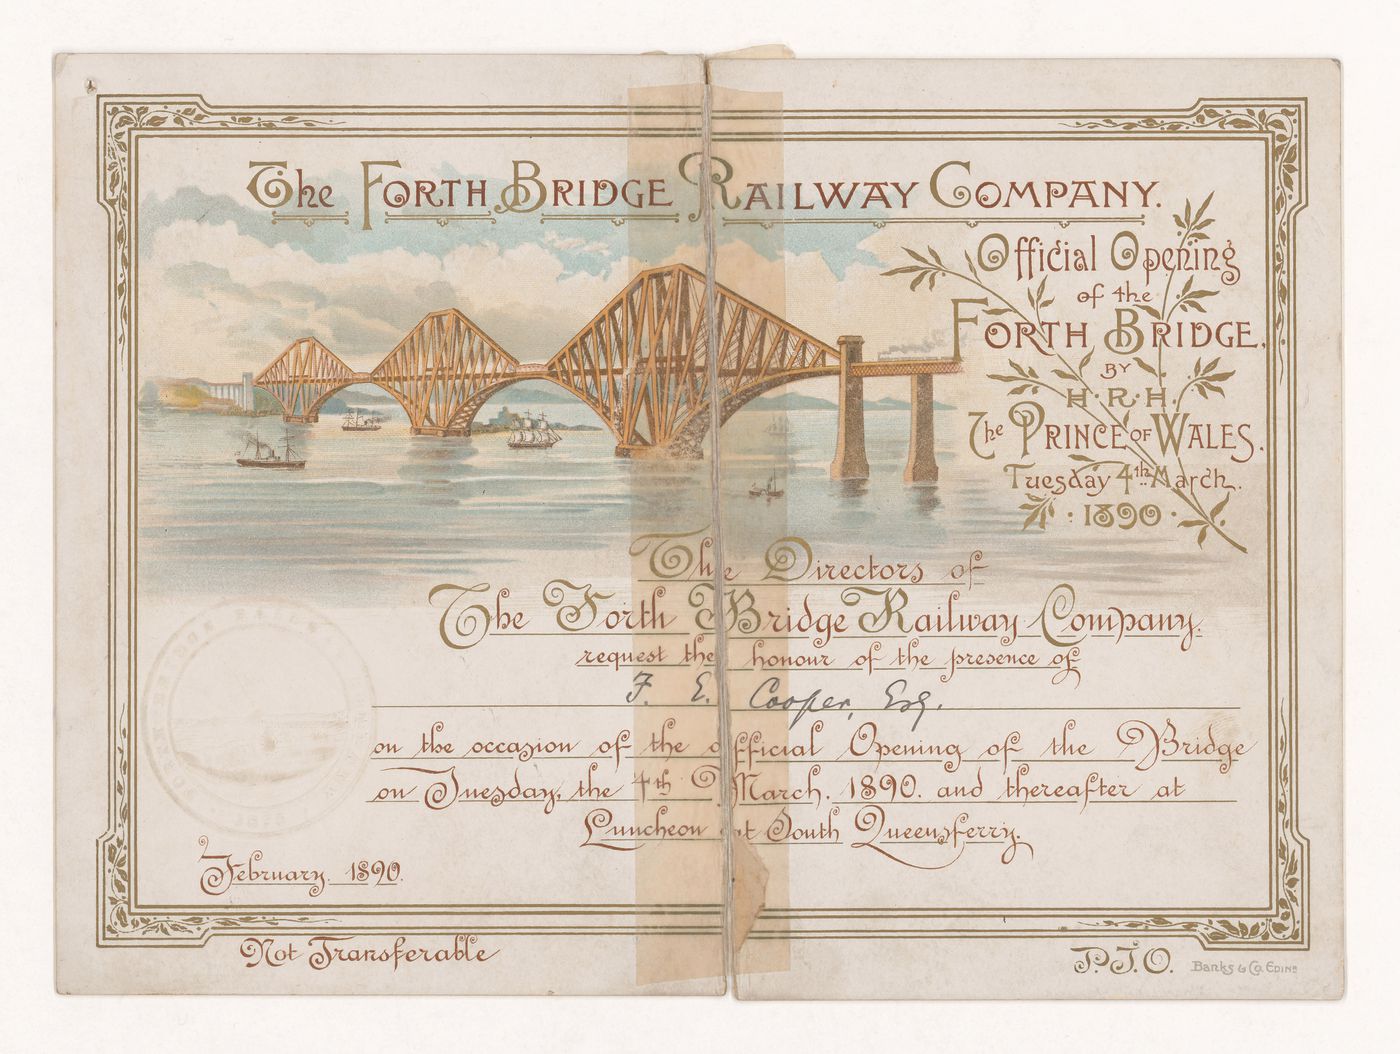 The Forth Bridge Railway Company.
Official Opening
of the
Forth Bridge.
BY
H.R.H.
The Prince of Wales.
Tuesday 4th March.
· 1890 ·
The Directors of
The Forth Bridge Railway Company.
request the honour of the presence of
F. E. Cooper, Esq.
on the occasion of the official Opening of the Bridge
on Tuesday, the 4th March. 1890. and thereafter at
Luncheon at South Queensferry.
February. 1890.
Not Transferable
P.T.O.
Banks & Co. Edinr